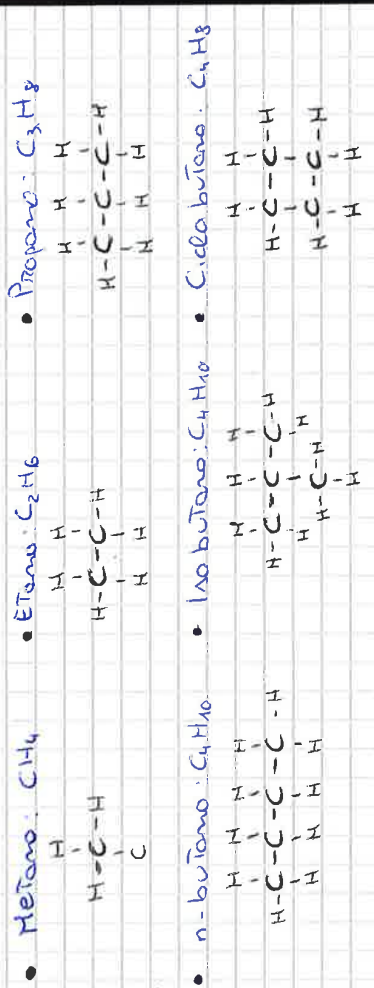 • Metano: CH₄
H
H-C-H
C
• Etano: C₂H₆
H H
H-C-C-H
H H
• Propano: C₃H₈
H H H
H-C-C-C-H
H H H
• n-butano: C₄H₁₀
H H H H
H-C-C-C-C-H
H H H H
• Isobutano: C₄H₁₀
H H H
H-C-C-C-H
H H
H-C-H
H
• Ciclobutano: C₄H₈
H H
H-C-C-H
H-C-C-H
H H